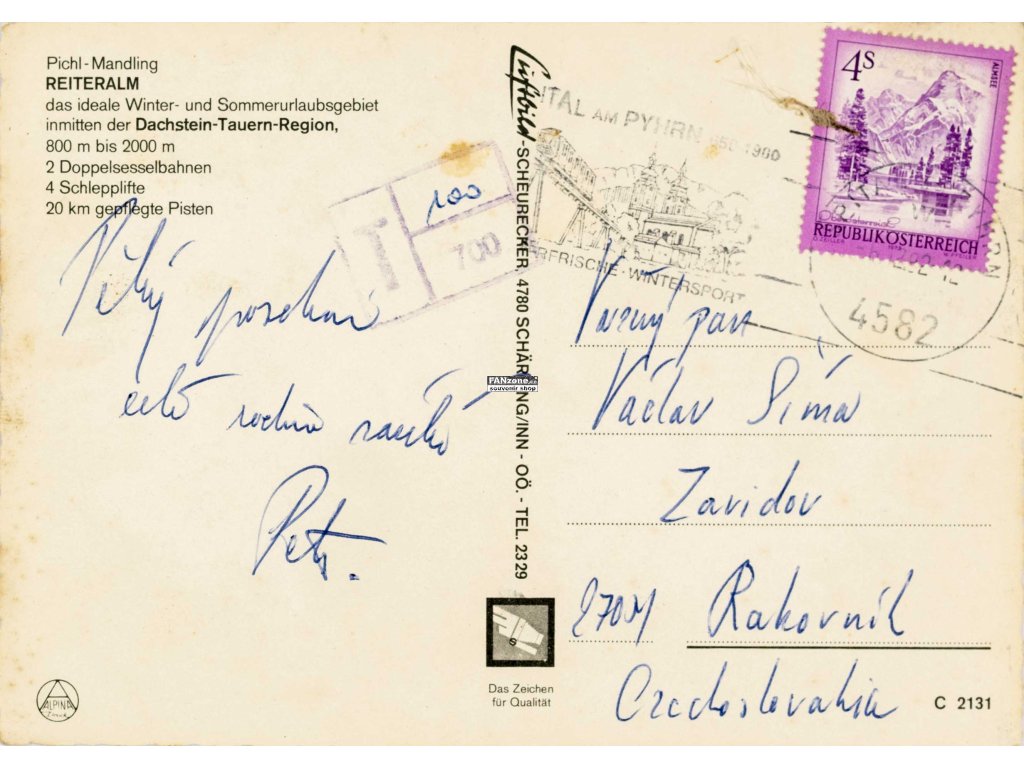 Pichl-Mandling
REITERALM
das ideale Winter- und Sommerurlaubsgebiet
inmitten der Dachstein-Tauern-Region,
800 m bis 2000 m
2 Doppelsesselbahnen
4 Schlepplifte
20 km gepflegte Pisten
T
100
700
celá rodina
Petr.
ALPINA
Luftbild-SCHEURECKER 4780 SCHÄRDING/INN - OÖ. - TEL. 2329
FANzone.cz
souvenir shop
Das Zeichen
für Qualität
ITAL AM PYHRN
ERFRISCHE-WINTERSPORT
4S
ALMSEE
REPUBLIK ÖSTERREICH
4582
Vážený pan
Václav Šíma
Zavidov
Rakovník
Czechoslovakia
C 2131